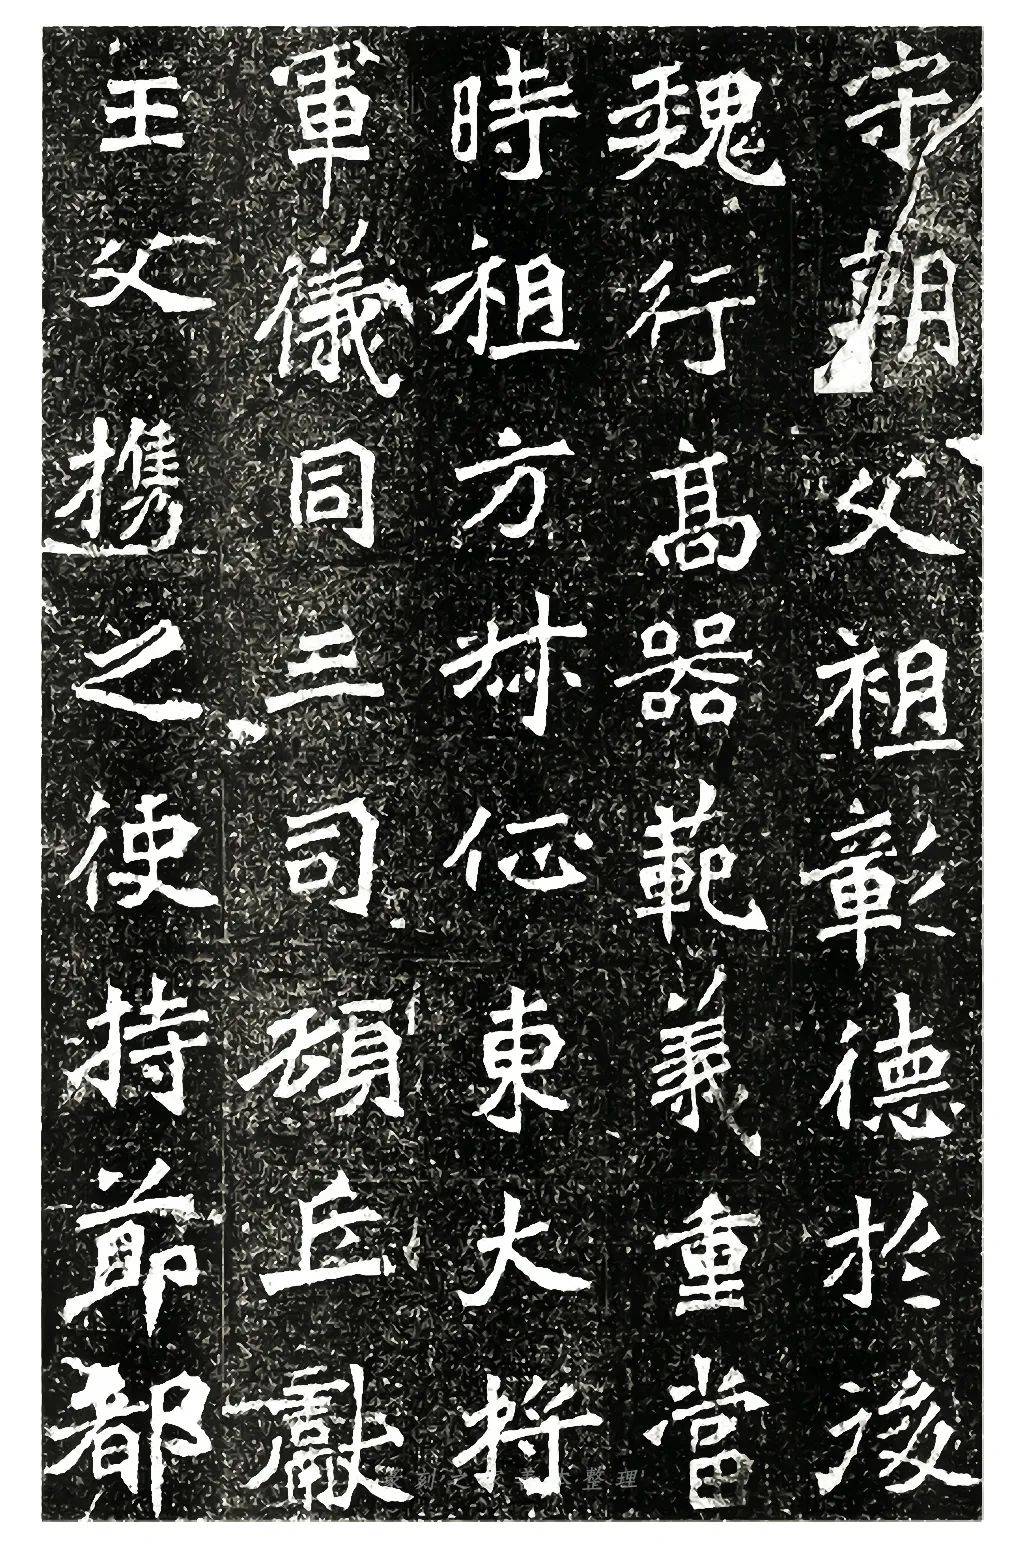 守朝父祖彰德於後
魏行髙器範義重當
時祖方叔征東大將
軍儀同三司頓丘獻
王父携之使持節都